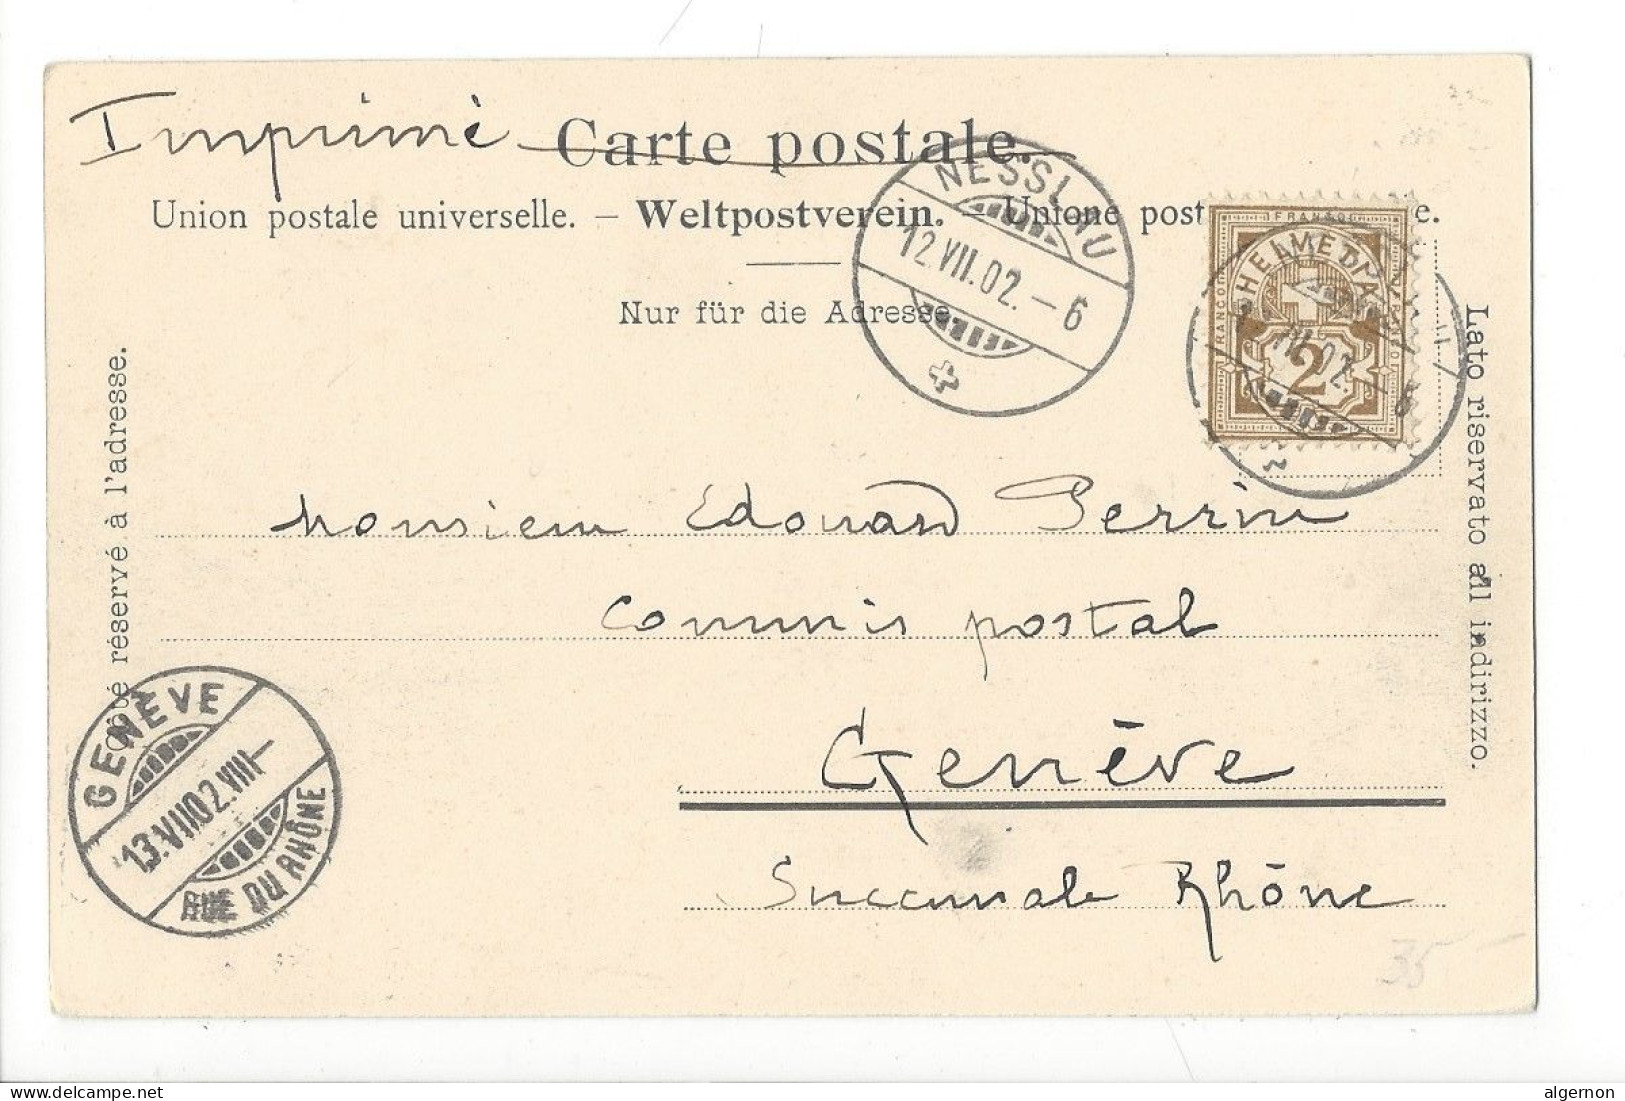 Imprimé Carte postale.
Union postale universelle. – Weltpostverein. – Unione post e.
Nur für die Adresse
NESSLAU
12.VII.02.–6
FRANCO
HELVETIA
FRANCO
2
VII.02.–6
Côté réservé à l'adresse.
Lato riservato all indirizzo.
Monsieur Edouard Perrin
Commis postal
Genève
Succursale Rhône
GENÈVE
13.VII02.VIII–
RUE DU RHÔNE
35 –
delcampe.net
algernon